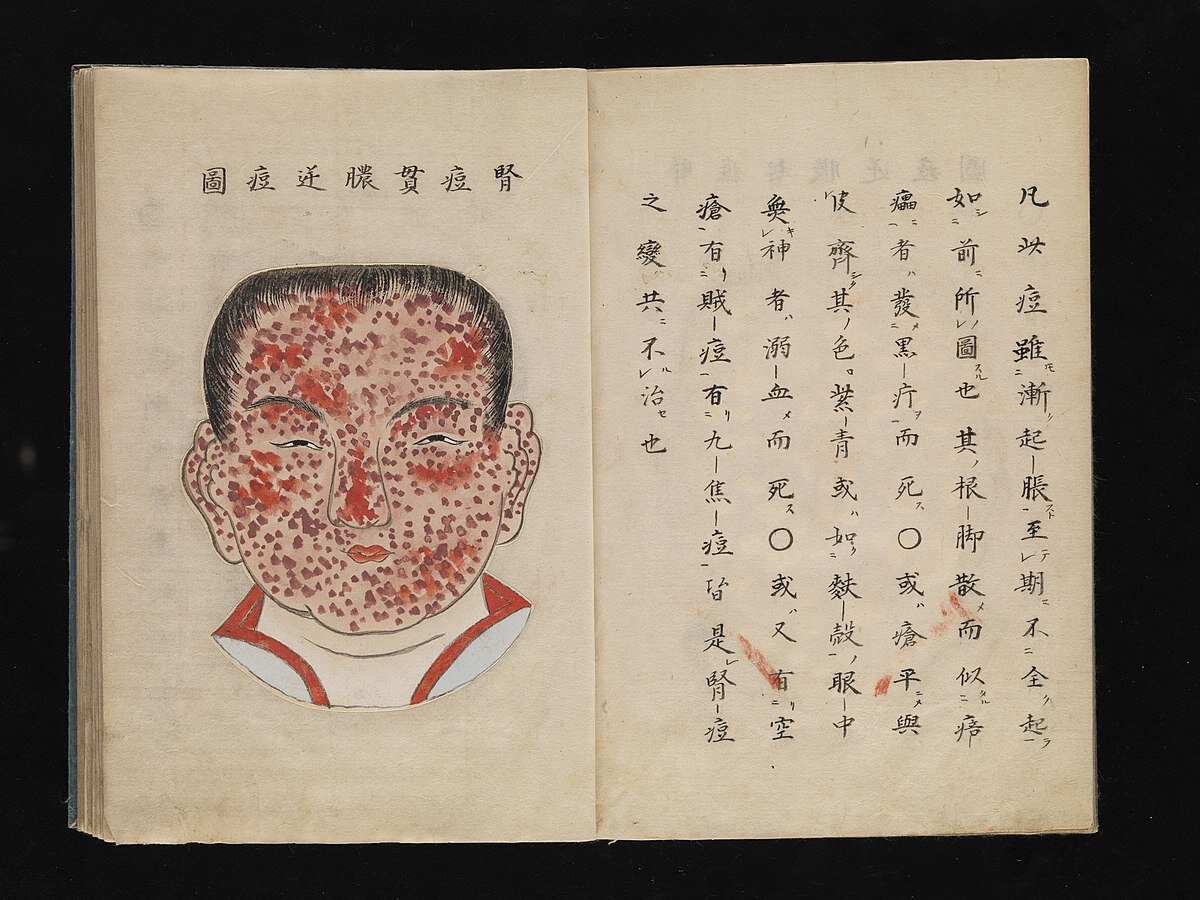 凡此痘雖漸起脹至期不全起
如前所圖也其根脚散而似痦
癗者發黑疔而死〇或瘡平與
皮齊其色紫青或如麩殼眼中
無神者溺血而死〇或又有空
瘡有賊痘有九焦痘皆是腎痘
之變共不治也
腎痘貫膿逆痘圖